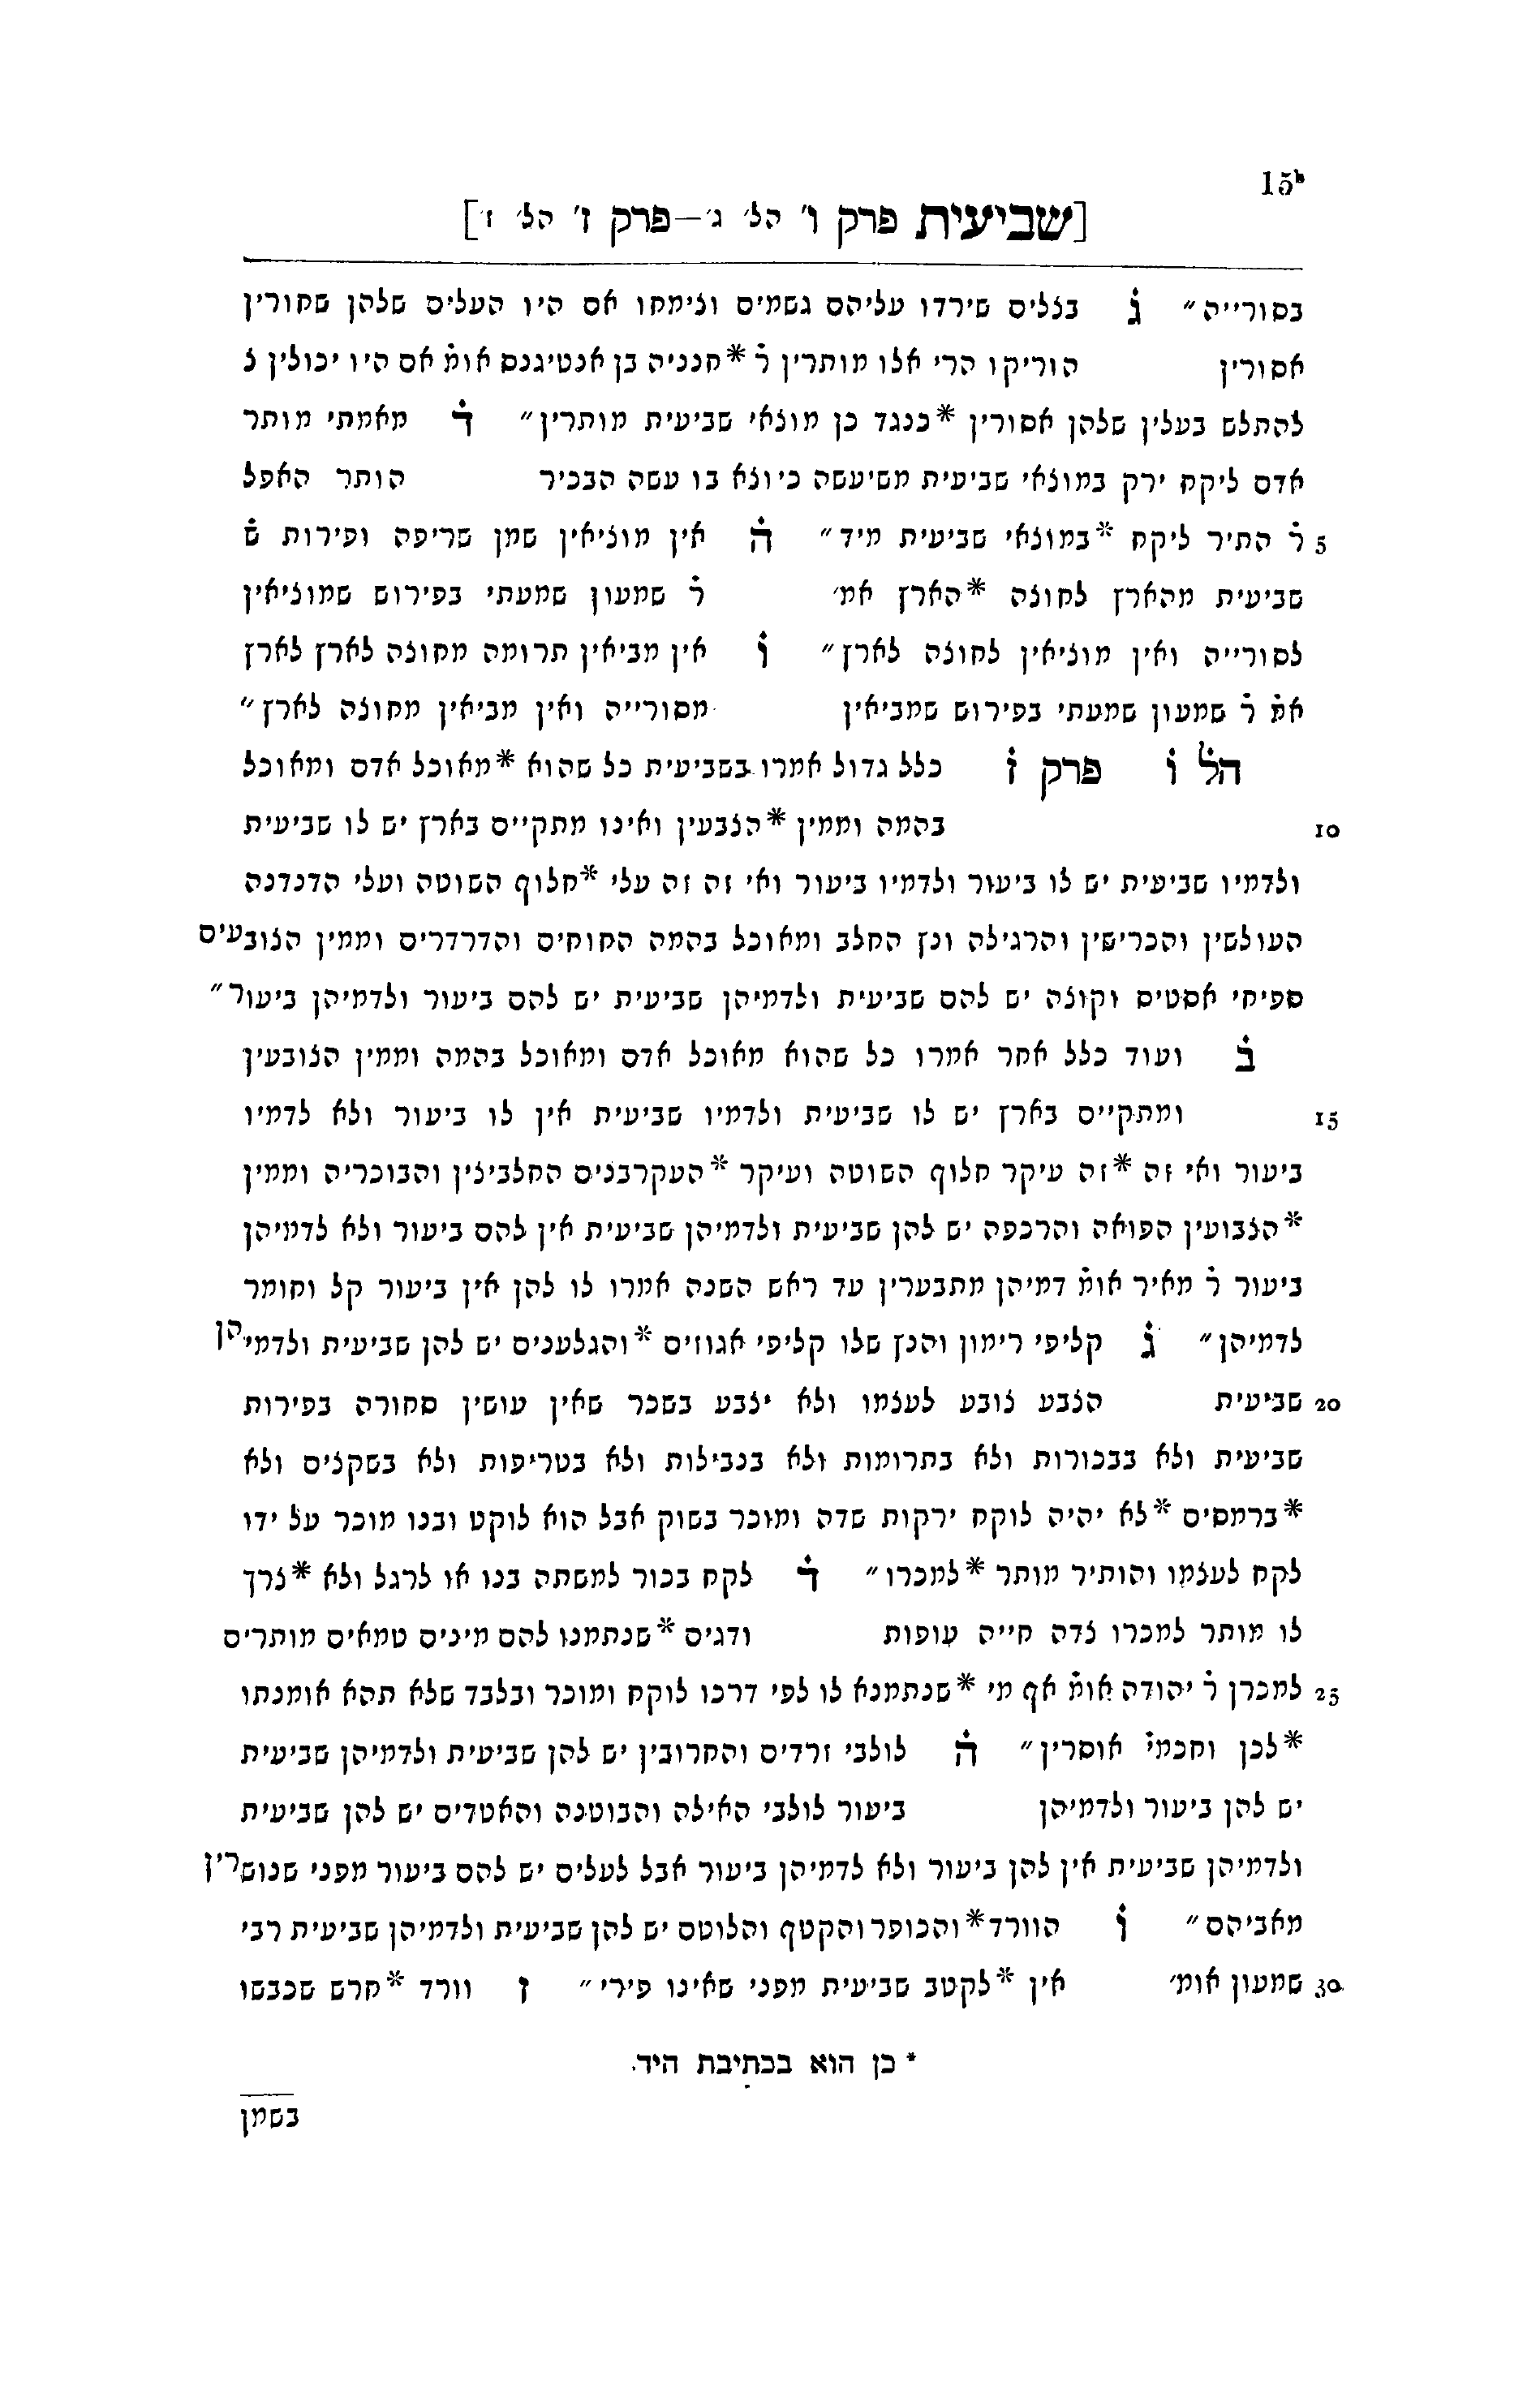 15ᵇ
[שביעית פרק ו׳ הל׳ ג׳—פרק ז׳ הל׳ ז׳]
בסורייה״ ג̇ בצלים שירדו עליהם גשמים וצימחו אם היו העלים שלהן שחורין
אסורין הוריקו הרי אלו מותרין ר̇ *חנניה בן אנטיגנס אומ̇ אם היו יכולין צ
להתלש בעלין שלהן אסורין *כנגד כן מוצאי שביעית מותרין״ ד̇ מאמתי מותר
אדם ליקח ירק במוצאי שביעית משיעשה כיוצא בו עשה הבכיר הותר האפל
5 ר̇ התיר ליקח *במוצאי שביעית מיד״ ה̇ אין מוציאין שמן שריפה ופירות ש̇
שביעית מהארץ לחוצה *הארץ אמ׳ ר̇ שמעון שמעתי בפירוש שמוציאין
לסורייה ואין מוציאין לחוצה לארץ״ ו̇ אין מביאין תרומה מחוצה לארץ לארץ
אמ̇ ר̇ שמעון שמעתי בפירוש שמביאין מסורייה ואין מביאין מחוצה לארץ״
הל̇ ו̇ פרק ז̇ כלל גדול אמרו בשביעית כל שהוא *מאוכל אדם ומאוכל
10 בהמה וממין *הצבעין ואינו מתקיים בארץ יש לו שביעית
ולדמיו שביעית יש לו ביעור ולדמיו ביעור ואי זה זה עלי *חלוף השוטה ועלי הדנדנה
העולשין והכרישין והרגילה ונץ החלב ומאוכל בהמה החוחים והדרדרים וממין הצובעים
ספיחי אסטיס וקוצה יש להם שביעית ולדמיהן שביעית יש להם ביעור ולדמיהן ביעור״
ב̇ ועוד כלל אחר אמרו כל שהוא מאוכל אדם ומאוכל בהמה וממין הצובעין
15 ומתקיים בארץ יש לו שביעית ולדמיו שביעית אין לו ביעור ולא לדמיו
ביעור ואי זה *זה עיקר חלוף השוטה ועיקר *העקרבנים החלביצין והבוכריה וממין
*הצבועין הפואה והרכפה יש להן שביעית ולדמיהן שביעית אין להם ביעור ולא לדמיהן
ביעור ר̇ מאיר אומ̇ דמיהן מתבערין עד ראש השנה אמרו לו להן אין ביעור קל וחומר
לדמיהן״ ג̇ קליפי רימון והנץ שלו קליפי אגוזים *והגלענים יש להן שביעית ולדמיהן
20 שביעית הצבע צובע לעצמו ולא יצבע בשכר שאין עושין סחורה בפירות
שביעית ולא בבכורות ולא בתרומות ולא בנבילות ולא בטריפות ולא בשקצים ולא
*ברמסים *לא יהיה לוקח ירקות שדה ומוכר בשוק אבל הוא לוקט ובנו מוכר על ידו
לקח לעצמו והותיר מותר *למכרו״ ד̇ לקח בכור למשתה בנו או לרגל ולא *צרך
לו מותר למכרו צדה חייה עופות ודגים *שנתמנו להם מינים טמאים מותרים
25 למכרן ר̇ יהודה אומ̇ אף מי *שנתמנא לו לפי דרכו לוקח ומוכר ובלבד שלא תהא אומנתו
*לכן וחכמי̇ אוסרין״ ה̇ לולבי זרדים והחרובין יש להן שביעית ולדמיהן שביעית
יש להן ביעור ולדמיהן ביעור לולבי האילה והבוטנה והאטדים יש להן שביעית
ולדמיהן שביעית אין להן ביעור ולא לדמיהן ביעור אבל לעלים יש להם ביעור מפני שנושרין
מאביהם״ ו̇ הוורד *והכופר והקטף והלוטם יש להן שביעית ולדמיהן שביעית רבי
30 שמעון אומ׳ אין *לקטב שביעית מפני שאינו פירי״ ז וורד *חרש שכבשו
* כן הוא בכתיבת היד.
בשמן